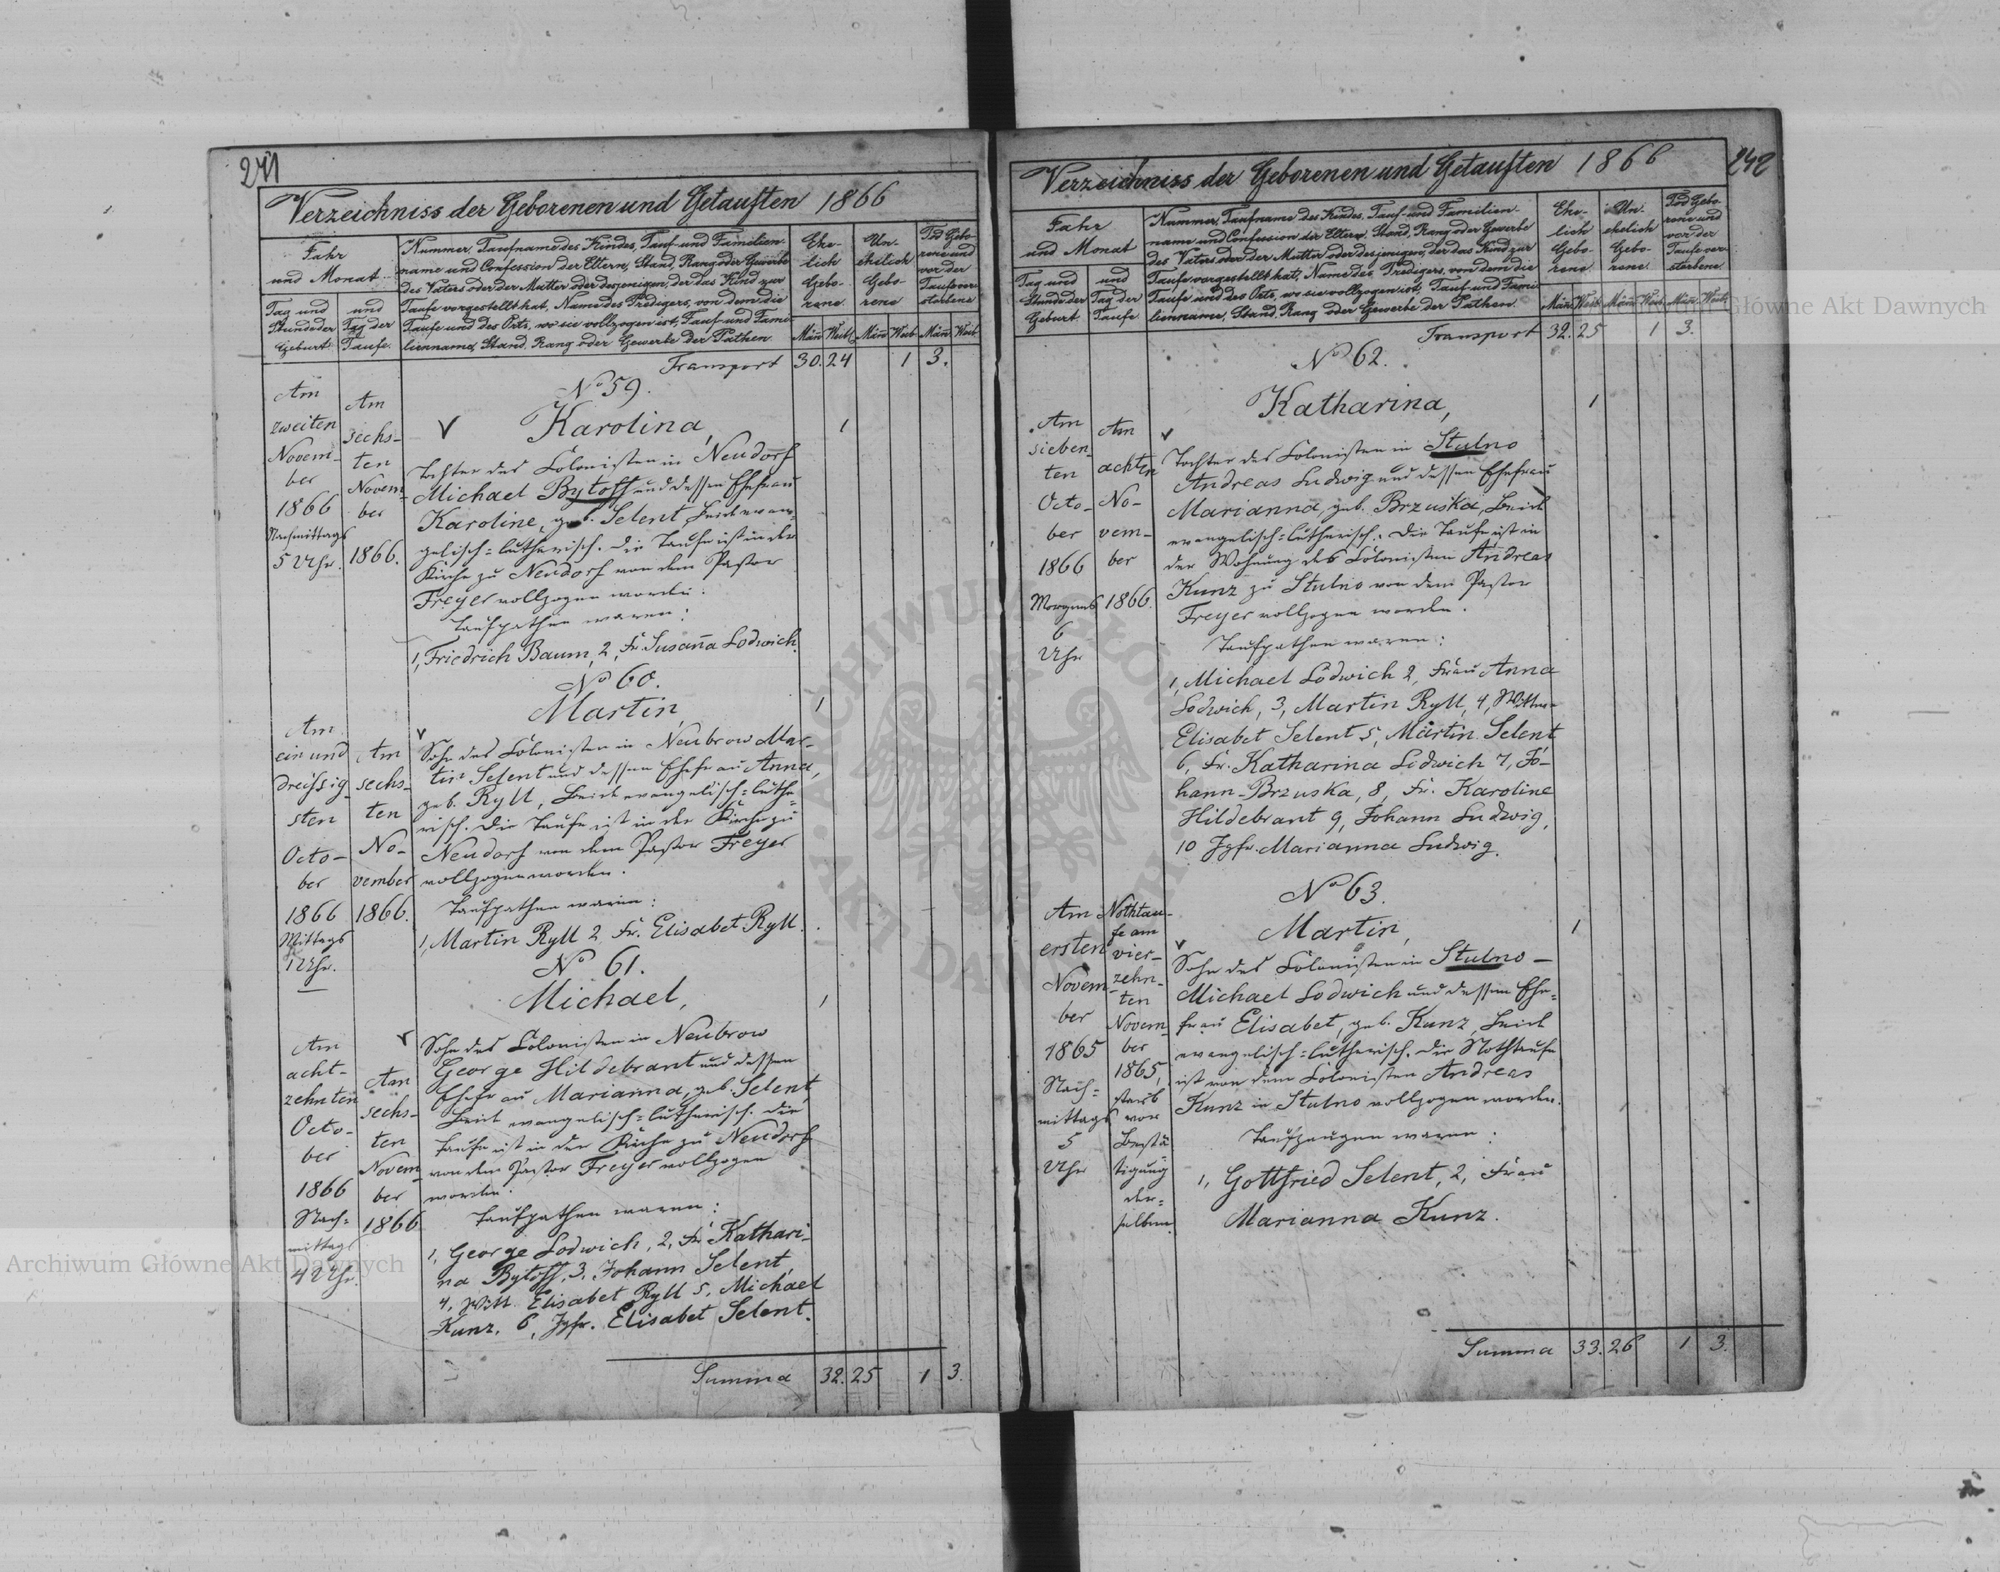 241
Verzeichniss der Geborenen und Getauften 1866
Jahr
und Monat
Tag und
Stunde der
Geburt.
und
Tag der
Taufe.
Nummer, Taufname des Kindes, Tauf- und Familien-
name und Confession der Eltern, Stand, Rang oder Gewerbe
des Vaters oder der Mutter oder desjenigen, der das Kind zur
Taufe vorgestellt hat, Name des Predigers, von dem die
Taufe und des Orts, wo sie vollzogen ist, Tauf- und Fami-
lienname, Stand, Rang oder Gewerbe der Pathen.
Ehe-
lich
Gebo-
rene.
Un-
ehelich
Gebo-
rene
Tod Gebo-
rene und
vor der
Taufe ver-
storbene
Män. Weib. Män. Weib. Män. Weib.
Transport 30. 24 1 3.
Am
zweiten
Novem-
ber
1866
Nachmittags
5 Uhr.
Am
sechs-
ten
Novem-
ber
1866.
No 59.
Karolina, 1
Tochter des Colonisten in Neudorf
Michael Bytoff und dessen Ehefrau
Karoline, geb. Selent, beide evan-
gelisch=lutherisch. Die Taufe ist in der
Kirche zu Neudorf von dem Pastor
Freyer vollzogen worden.
Taufpathen waren:
1, Friedrich Baum, 2, Fr. Susanna Lodwich.
Am
ein und
dreissig-
sten
Octo-
ber
1866
Mittags
12 Uhr.
Am
sechs-
ten
No-
vember
1866.
No 60.
Martin, 1
Sohn des Colonisten in Neubrow Mar-
tin Selent und dessen Ehefrau Anna,
geb. Ryll, beide evangelisch=luthe-
risch. Die Taufe ist in der Kirche zu
Neudorf von dem Pastor Freyer
vollzogen worden.
Taufpathen waren:
1, Martin Ryll 2, Fr. Elisabet Ryll.
Am
acht-
zehnten
Octo-
ber
1866
Nach-
mittags
4 Uhr.
Am
sechs-
ten
Novem-
ber
1866
No 61.
Michael, 1
Sohn des Colonisten in Neubrow
George Hildebrant und dessen
Ehefrau Marianna, geb. Selent,
beide evangelisch=lutherisch. Die
Taufe ist in der Kirche zu Neudorf
von dem Pastor Freyer vollzogen
worden.
Taufpathen waren:
1, George Lodwich, 2, Fr. Kathari-
na Bytoff, 3, Johann Selent,
4, Witt. Elisabet Ryll 5, Michael
Kunz, 6, Jgfr. Elisabet Selent.
Summa 32. 25 1 3.
242
Verzeichniss der Geborenen und Getauften 1866
Jahr
und Monat
Tag und
Stunde der
Geburt
und
Tag der
Taufe
Nummer, Taufname des Kindes, Tauf- und Familien-
name und Confession der Eltern, Stand, Rang oder Gewerbe
des Vaters oder der Mutter oder desjenigen, der das Kind zur
Taufe vorgestellt hat, Name des Predigers, von dem die
Taufe und des Orts, wo sie vollzogen ist, Tauf- und Fami-
lienname, Stand, Rang oder Gewerbe der Pathen.
Ehe-
lich
Gebo-
rene.
Un-
ehelich
Gebo-
rene.
Tod Gebo-
rene und
vor der
Taufe ver-
storbene
Män. Weib. Män. Weib. Män. Weib.
Transport 32. 25 1 3.
Am
sieben-
ten
Octo-
ber
1866
Morgens
6
Uhr
Am
achten
No-
vem-
ber
1866.
No 62.
Katharina, 1
Tochter des Colonisten in Stulno
Andreas Ludwig und dessen Ehefrau
Marianna, geb. Brzuska, beide
evangelisch=lutherisch. Die Taufe ist in
der Wohnung des Colonisten Andreas
Kunz zu Stulno von dem Pastor
Freyer vollzogen worden.
Taufpathen waren:
1, Michael Lodwich 2, Frau Anna
Lodwich, 3, Martin Ryll, 4, Wittwe
Elisabet Selent 5, Martin Selent
6, Fr. Katharina Lodwich 7, Jo-
hann Brzuska, 8, Fr. Karoline
Hildebrant 9, Johann Ludwig,
10 Jgfr. Marianna Ludwig.
Am
ersten
Novem-
ber
1865
Nach-
mittags
5
Uhr
Nothtau-
fe am
vier-
zehn-
ten
Novem-
ber
1865,
starb
vor
Bestä
tigung
der-
selben
No 63.
Martin, 1
Sohn des Colonisten in Stulno -
Michael Lodwich und dessen Ehe-
frau Elisabet, geb. Kunz, beide
evangelisch=lutherisch. Die Nothtaufe
ist von dem Colonisten Andreas
Kunz in Stulno vollzogen worden.
Taufzeugen waren:
1, Gottfried Selent, 2, Frau
Marianna Kunz.
Summa 33. 26 1 3.
Archiwum Główne Akt Dawnych
Archiwum Główne Akt Dawnych
ARCHIWUM GŁÓWNE AKT DAWNYCH